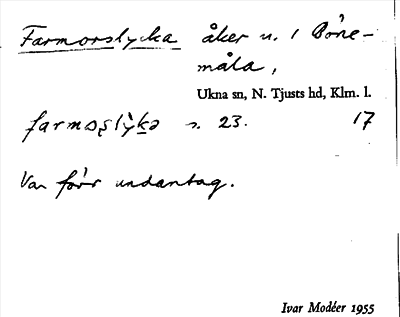 Farmorslycka åker u. / Böne-
måla,
Ukna sn, N. Tjusts hd, Klm. l.
farmoslỳkə s. 23. 17
Var förr undantag.
Ivar Modéer 1955